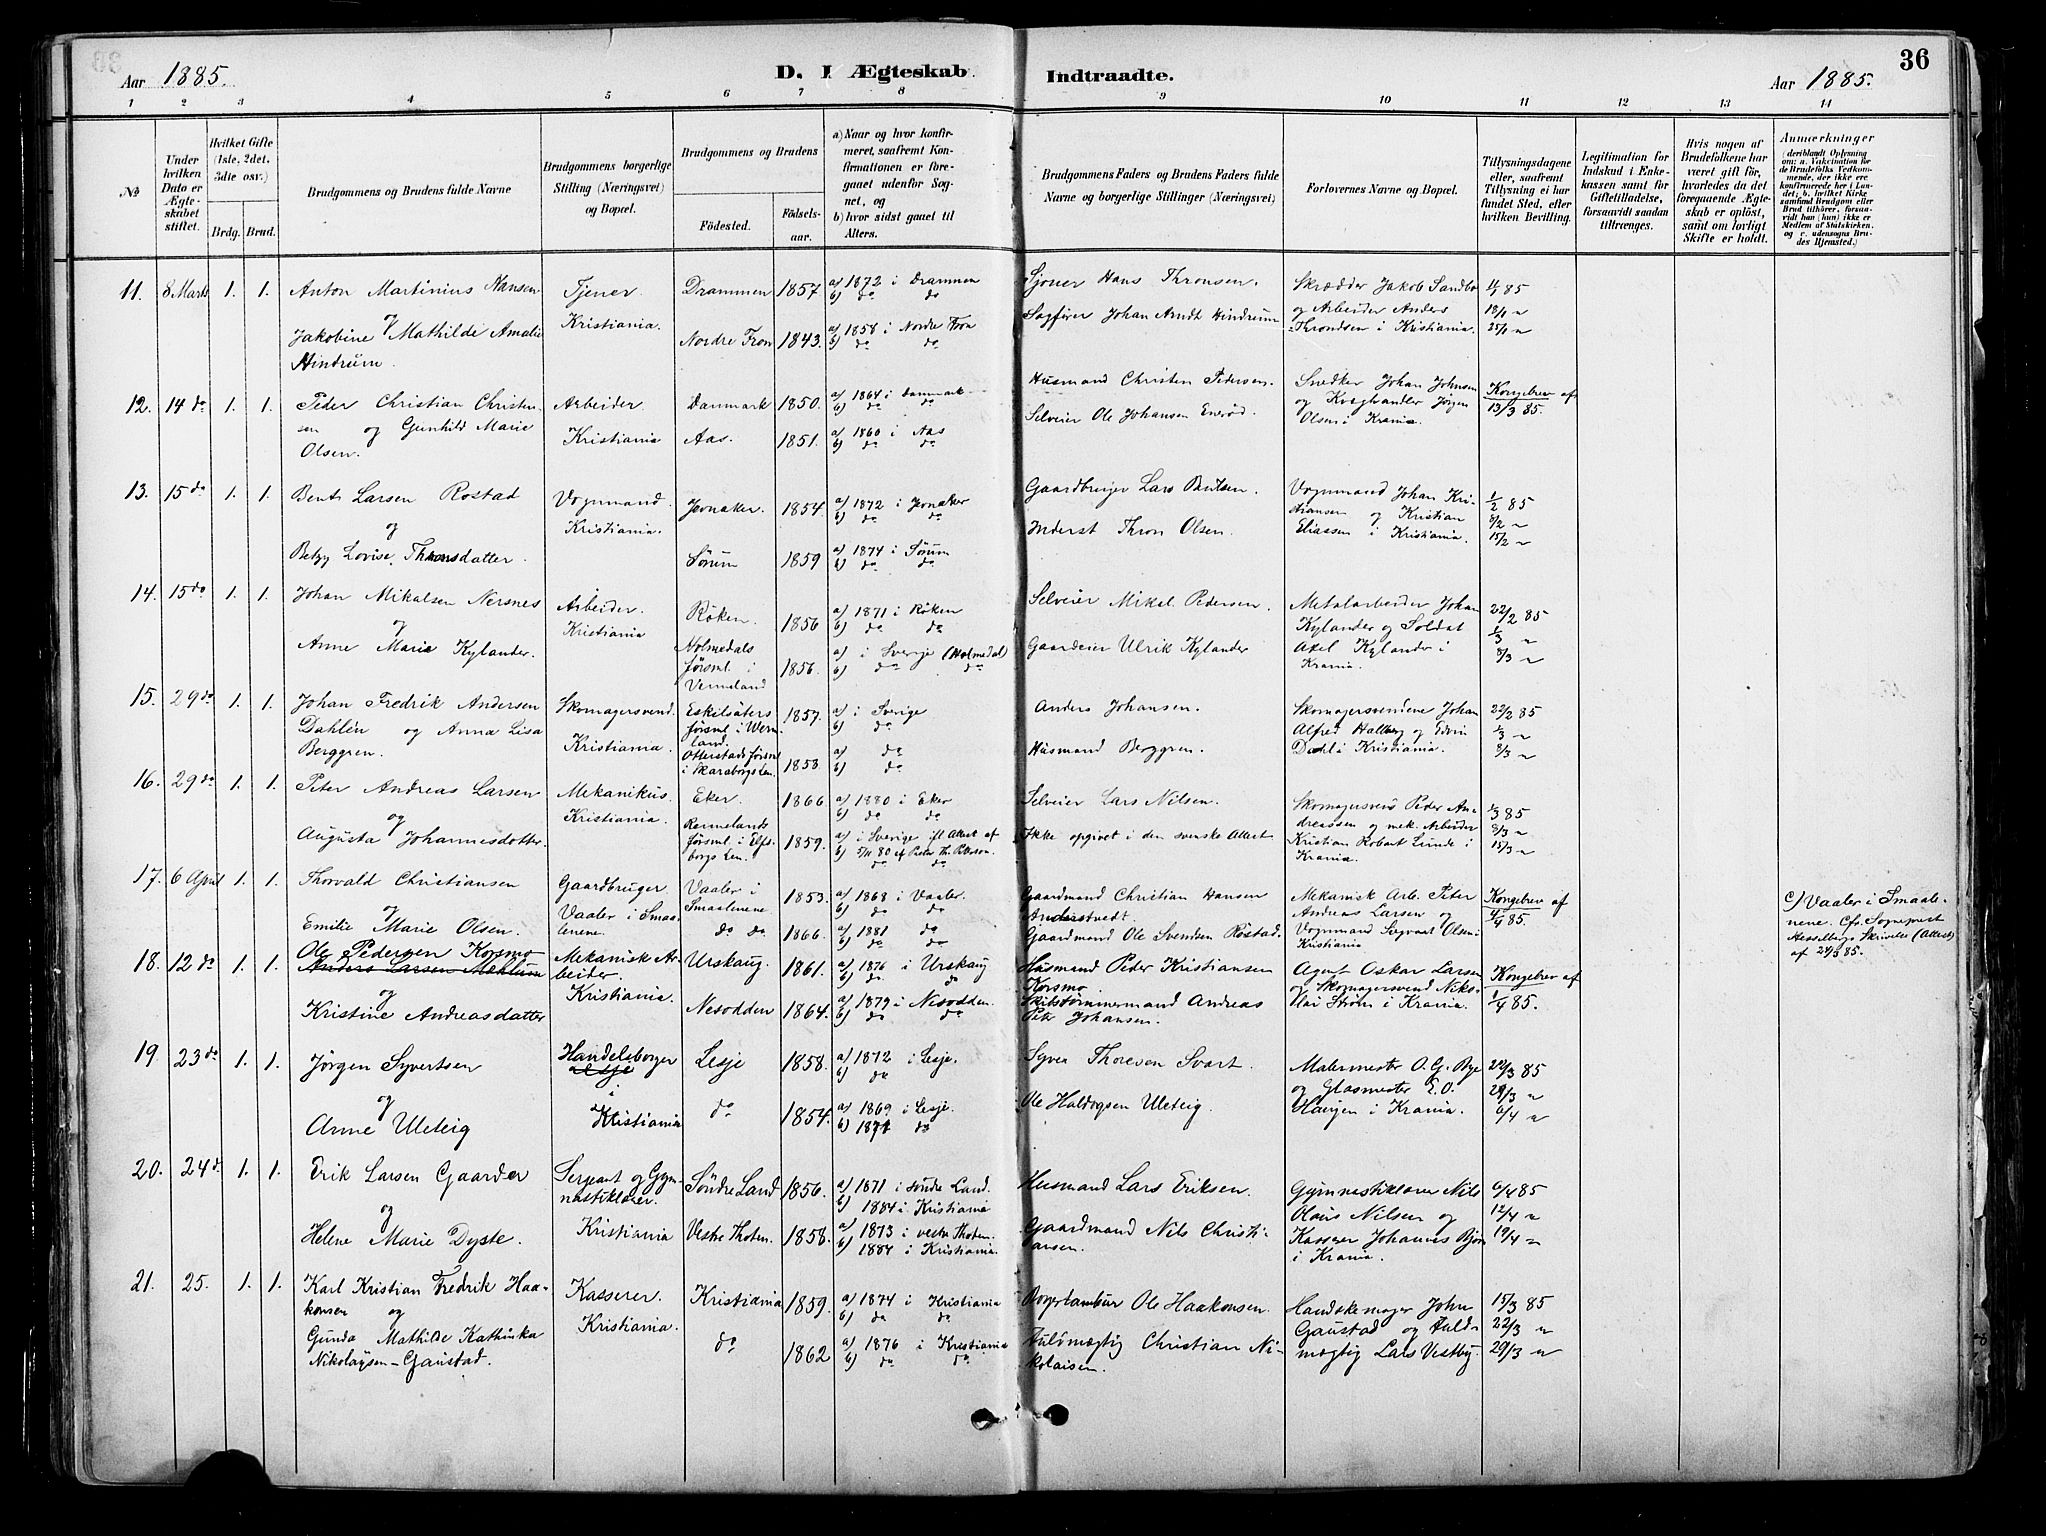 Aar 1885.
D. I Ægteskab Indtraadte.
36
Aar 1885.
1 2 3 4 5 6 7 8 9 10 11 12 13 14
№
Under hvilken Dato er Ægteskabet stiftet.
Hvilket Gifte (1ste, 2det, 3die osv.)
Brdg. Brud.
Brudgommens og Brudens fulde Navne
Brudgommens borgerlige Stilling (Næringsvei) og Bopæl.
Brudgommens og Brudens
Fødested.
Fødselsaar.
a) Naar og hvor konfirmeret, saafremt Konfirmationen er foregaaet udenfor Sognet, og
b) hvor sidst gaaet til Alters.
Brudgommens Faders og Brudens Faders fulde Navne og borgerlige Stillinger (Næringsvei)
Forlovernes Navne og Bopæl.
Tillysningsdagene eller, saafremt Tillysning ei har fundet Sted, efter hvilken Bevilling.
Legitimation for Indskud i Enkekassen samt for Giftetilladelse, forsaavidt saadan tiltrænges.
Hvis nogen af Brudefolkene har været gift før, hvorledes da det foregaaende Ægteskab er opløst, samt om lovligt Skifte er holdt.
Anmærkninger (deriblandt Oplysning om: a. Vakcination for de Brudefolks Vedkommende, der ikke ere konfirmerede her i Landet; b. hvilket Kirkesamfund Brudgom eller Brud tilhører, forsaavidt han (hun) ikke er Medlem af Statskirken, og c. udensogns Brudes Hjemsted.)
11. 8 Marts 1. 1. Anton Martinius Hansen Tjener. Drammen 1857 a) 1872 i Drammen Hans Thronsen. Skrædder Jakob Sandbo 11/1 85
og Kristiania. b) do do Sagfører Johan Arndt Hindrum og Arbeider Anders 18/1 "
Jakobine Mathilde Amalie Nordre Fron 1843. a) 1858 i Nordre Fron Throndsen i Kristiania. 25/1 "
Hindrum. b) do do
12. 14 do 1. 1. Peder Christian Christen- Arbeider Danmark 1850. a) 1864 i Danmark Husmand Christen Pedersen. Snedker Johan Johnsen Kongebrev af
sen og Gunhild Marie Kristiania b) do do Selveier Ole Johansen og Kvæghandler Jørgen 13/3 85.
Olsen. Aas. 1851. a) 1860 i Aas Olsen i Krania.
b) do do
13. 15 do 1. 1. Bent Larsen Rostad Vognmand. Jevnaker. 1854. a) 1872 i Jevnaker Gaardbruger Lars Bentsen. Vognmand Johan Kri- 1/2 85
og Kristiania. b) do do Inderst Thron Olsen. stiansen og Kristian 8/2 "
Betzy Lovise Thronsdatter. Sørum 1859 a) 1874 i Sørum Eliassen i Kristiania. 15/2 "
b) do do
14. 15 do 1. 1. Johan Mikalsen Nersnes Arbeider. Røken. 1856 a) 1871 i Røken Selveier Mikel Pedersen. Metalarbeider Johan 22/2 85
og Kristiania b) do do Kylander og Soldat 1/3 "
Anne Marie Kylander. Holmedals 1856. a) i Sverje (Holmedal) Gaardeier Ulrik Kylander Axel Kylander i 8/3 "
førsml. i b) do do Krania.
Vermeland
15. 29 do 1. 1. Johan Fredrik Andersen Skomagersvend. Eskilsäters 1857. a) i Sverige Anders Johansen. Skomagersvendene Johan 22/2 85
Dahlén og Anna Lisa Kristiania. førsml. i Wern b) do Alfred Hallberg og Edvin 1/3 "
Berggren. land. Husmand Berggren. Dahl i Kristiania. 8/3 "
Otterstads førsml 1853. a) do
i Skaraborgs Len. b) do
16. 29 do 1. 1. Peter Andreas Larsen Mekanikus. Eker. 1866 a) 1880 i Eker Selveier Lars Nilsen. Skomagersvend Peder An- 1/3 85
og Kristiania. b) do do dreassen og mek. Arbeider 8/3 "
Augusta Johannesdotter. Rennelands 1859. a) i Sverige ifl Attest af Ikke opgivet i den svenske Attest Kristian Robert Lunde i 15/3 "
førsml. i Elfs- b) 5/11 80 af Peter Th. Peterson. Krania.
borgs Len. do do
17. 6 April 1. 1. Thorvald Christiansen Gaardbruger. Vaaler i 1853. a) 1868 i Vaaler. Gaardmand Christian Hansen Mekanisk Arb. Peter Kongebrev af
og Vaaler i Smaa- Smaalenene b) do do Anderstvedt. Andreas Larsen og 4/4 85.
Emilie Marie Olsen. lenene. do do 1866. a) 1881 do Gaardmand Ole Svendsen Røstad. Vognmand Sigvart Olsen
b) do do Kristiania
c) Vaaler i Smaalenene. Cfr. Sognepræst Hesselbergs Skrivelse (Attest) af 24/3 85.
18. 12 do 1. 1. Ole Pedersen Korsmo Mekanisk Ar- Urskaug. 1861. a) 1876 i Urskaug Husmand Peder Kristiansen Agent Oskar Larsen Kongebrev af
Anders Larsen Mehlum beider. b) do do Korsmo og Skomagersvend Nik- 1/4 85.
og Kristiania. Skibstømmermand Andreas olai Strøm i Krania.
Kristine Andreasdatter Nesodden 1864. a) 1879 i Nesodden. Petr Johansen.
b) do do
19. 23 do 1. 1. Jørgen Syvertsen Handelsborger Lesje 1858. a) 1872 i Lesje. Syver Thoresen Svart. Malermester O. G. Bye 22/3 85
og Lesje b) do og Glasmester E. O. 29/3 "
Anne Uleteig i Kristiania do 1854. a) 1869 i Lesje. Ole Haldogsen Uleteig. Haugen i Krania. 6/4 "
b) 1874 do
20. 24 do 1. 1. Erik Larsen Gaarder Sergeant og Gym- Söndre Land 1856. a) 1871 i søndre Land. Husmand Lars Eriksen. Gymnastiklærer Nils 6/4 85
og nastiklærer. b) 1884 i Kristiania Olaus Nilsen og 12/4 "
Helene Marie Dyste. Kristiania Vestre Thoten. 1858. a) 1873 i vestre Thoten. Gaardmand Nils Christi- Kasserer Johannes Bjør 19/4 "
b) 1884 i Kristiania. ansen. i Krania.
21. 25. 1. 1. Karl Kristian Fredrik Haa- Kasserer. Kristiania 1859. a) 1874 i Kristiania Ole Haakonsen. Handskemager John 15/3 85
konsen og Kristiania. b) do do Gaustad og Fuld- 22/3 "
Gunda Mathilde Kathinka do 1862 a) 1876 i Kristiania Fuldmægtig Christian Ni- mægtig Lars Vestby. 29/3 "
Nikolaysen-Gaustad. b) do do kolaisen.